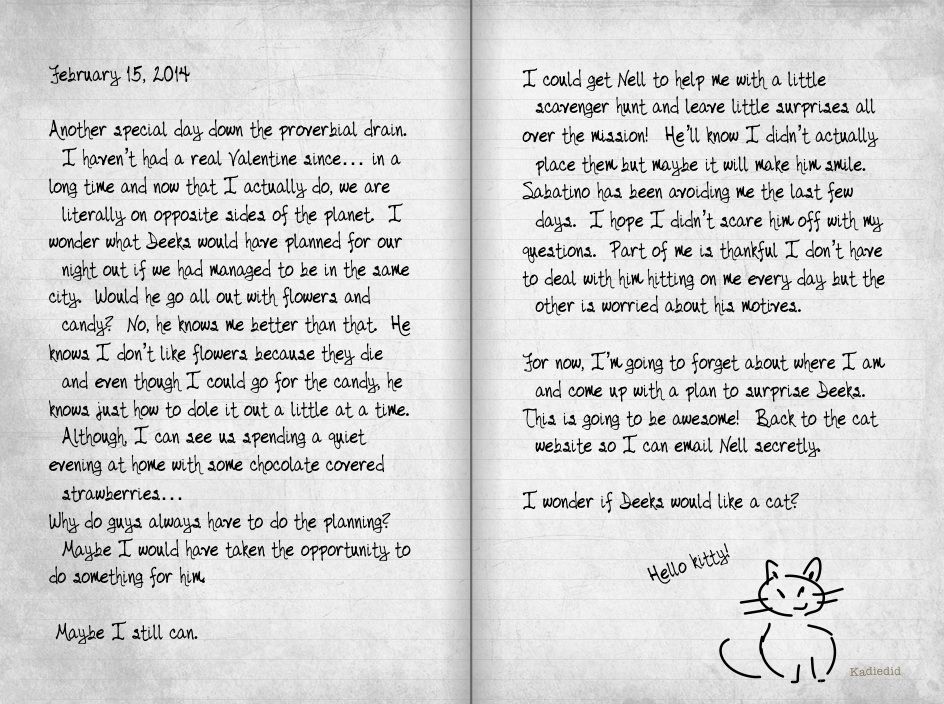 February 15, 2014
Another special day down the proverbial drain.
I haven't had a real Valentine since... in a
long time and now that I actually do, we are
literally on opposite sides of the planet. I
wonder what Deeks would have planned for our
night out if we had managed to be in the same
city. Would he go all out with flowers and
candy? No, he knows me better than that. He
knows I don't like flowers because they die
and even though I could go for the candy, he
knows just how to dole it out a little at a time.
Although, I can see us spending a quiet
evening at home with some chocolate covered
strawberries...
Why do guys always have to do the planning?
Maybe I would have taken the opportunity to
do something for him.
Maybe I still can.
I could get Nell to help me with a little
scavenger hunt and leave little surprises all
over the mission! He'll know I didn't actually
place them but maybe it will make him smile.
Sabatino has been avoiding me the last few
days. I hope I didn't scare him off with my
questions. Part of me is thankful I don't have
to deal with him hitting on me every day but the
other is worried about his motives.
For now, I'm going to forget about where I am
and come up with a plan to surprise Deeks.
This is going to be awesome! Back to the cat
website so I can email Nell secretly.
I wonder if Deeks would like a cat?
Hello kitty!
Kadiedid